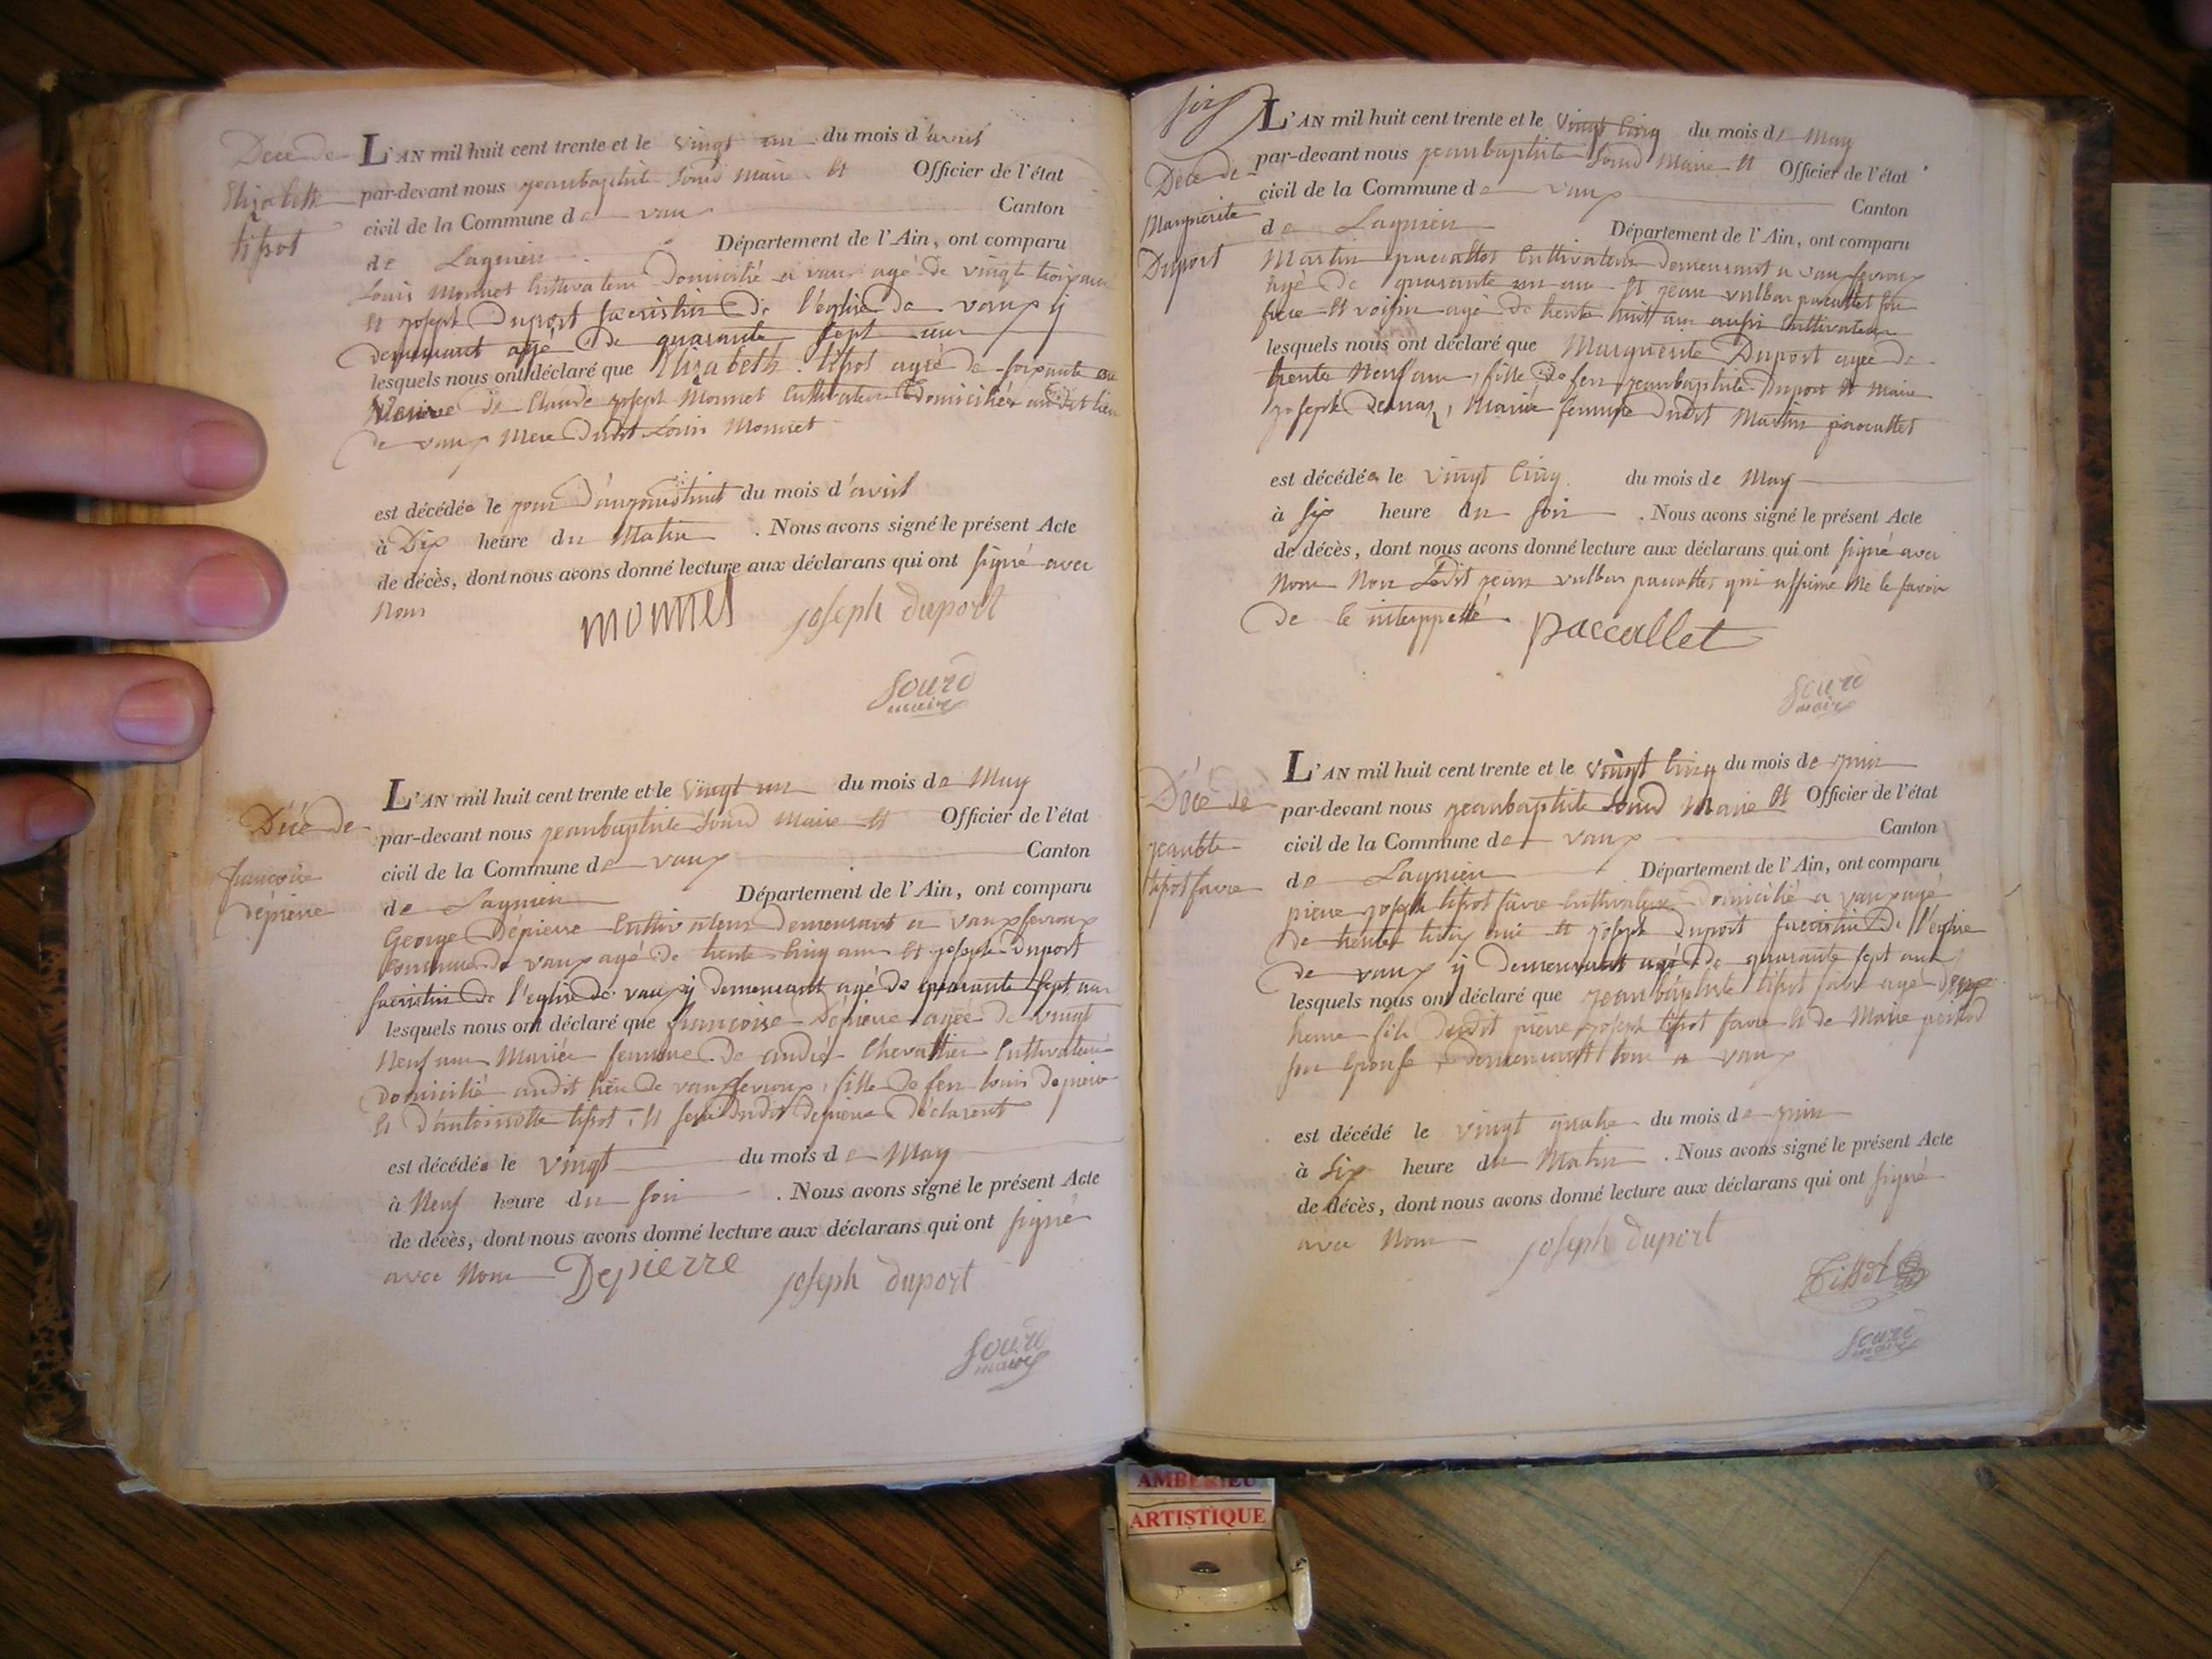 Décé de
Elizabeth
tissot
L'AN mil huit cent trente et le vingt un du mois d'avril
par-devant nous jeanbaptiste Sourd Maire et Officier de l'état
civil de la Commune de vaux Canton
de Lagnieu Département de l'Ain, ont comparu
Louis Monnet Cultivateur Domicilié a vaux agé de vingt trois ans
et joseph Duport sacristin de l'église de vaux y
demeurant agé de quarante sept ans
lesquels nous ont déclaré que Elizabeth tissot agée de soixante ans
Veuve de Claude joseph Monnet Cultivateur Domiciliés audit lieu
de vaux Mere dudit Louis Monnet
est décédée le jour d'aujourdhui du mois d'avril
à Dix heure du Matin . Nous avons signé le présent Acte
de décès, dont nous avons donné lecture aux déclarans qui ont signé avec
Nous
monnet joseph duport
Sourd
maire
Décé de
francoise
dépierre
L'AN mil huit cent trente et le vingt un du mois de May
par-devant nous jeanbaptiste Sourd Maire et Officier de l'état
civil de la Commune de vaux Canton
de Lagnieu Département de l'Ain, ont comparu
George Dépierre Cultivateur Demeurant a Vauxfevroux
Commune de vaux agé de trente cinq ans et joseph Duport
sacristin de l'eglise de vaux y demeurant agé de quarante sept ans
lesquels nous ont déclaré que francoise Dépierre agée de vingt
Neuf ans Mariée femme de andré Chevallier Cultivateur
domicilié audit lieu de vauxfevroux, fille de feu louis Depierre
et d'antoinette tissot, et dudit Depierre Déclarent
est décédée le vingt du mois de May
à Neuf heure du soir . Nous avons signé le présent Acte
de décès, dont nous avons donné lecture aux déclarans qui ont signé
avec Nous Depierre joseph duport
Sourd
maire
six
Décé de
Marguerite
Duport
L'AN mil huit cent trente et le Vingt cinq du mois de May
par-devant nous jeanbaptiste Sourd Maire et Officier de l'état
civil de la Commune de vaux Canton
de Lagnieu Département de l'Ain, ont comparu
Martin paccallet Cultivateur Demeurant a vauxfevroux
agé de quarante un ans et jean vulbas paccallet son
frere et voisin agé de trente huit ans aussi Cultivateur
lesquels nous ont déclaré que Marguerite Duport agée de
trente Neuf ans, fille de feu jeanbaptiste Duport et Marie
joseph , Mariée femme dudit Martin paccallet
est décédée le vingt cinq du mois de May
à six heure du soir . Nous avons signé le présent Acte
de décès, dont nous avons donné lecture aux déclarans qui ont signé avec
Nous Non Ledit jean vulbas paccallet qui affirme Ne le savoir
de ce interppellé paccallet
Sourd
maire
Décé de
jeanbte
tissot favre
L'AN mil huit cent trente et le vingt cinq du mois de juin
par-devant nous jeanbaptiste Sourd Maire et Officier de l'état
civil de la Commune de vaux Canton
de Lagnieu Département de l'Ain, ont comparu
pierre joseph tissot favre Cultivateur Domicilié a vaux agé
de trente trois ans et joseph Duport sacristin De l'église
de vaux y demeurant agé de quarante sept ans
lesquels nous ont déclaré que jean baptiste tissot favre agé deux
heure fils dudit pierre joseph tissot favre et de Marie
son Epouse Demeurant tous a vaux
est décédé le vingt quatre du mois de juin
à Six heure du Matin . Nous avons signé le présent Acte
de décès, dont nous avons donné lecture aux déclarans qui ont signé
avec Nous joseph duport
Tissot
Sourd
maire
AMBERIEU
ARTISTIQUE